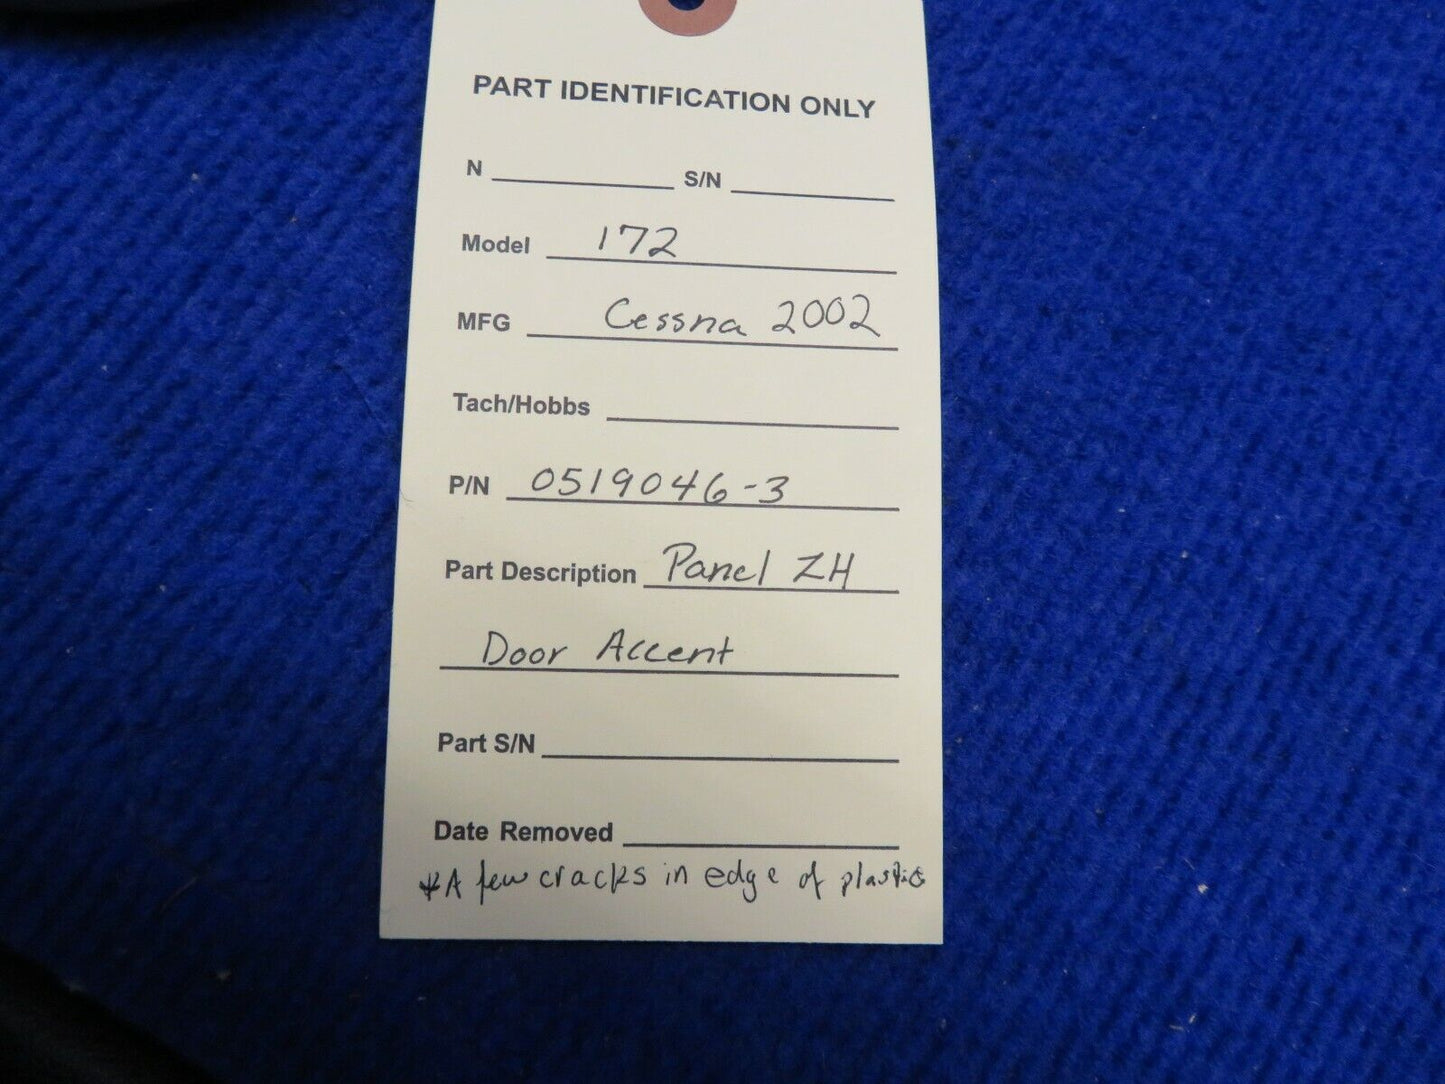 PART IDENTIFICATION ONLY
N S/N
Model 172
MFG Cessna 2002
Tach/Hobbs
P/N 0519046-3
Part Description Panel LH
Door Accent
Part S/N
Date Removed
*A few cracks in edge of plastic